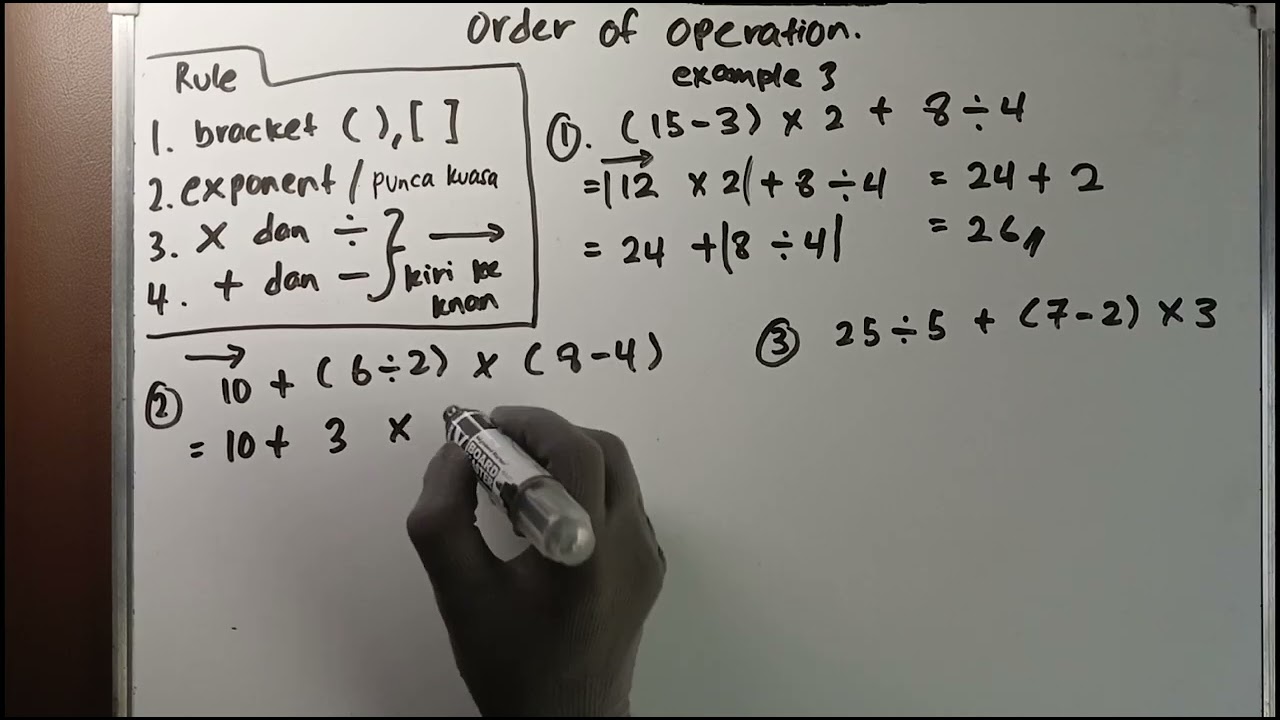 Order of Operation.
example 3
Rule
1. bracket ( ), [ ]
2. exponent / punca kuasa
3. × dan ÷
4. + dan −
kiri ke
knan
①. (15 − 3) × 2 + 8 ÷ 4
= |12 × 2| + 8 ÷ 4
= 24 + |8 ÷ 4|
= 24 + 2
= 26
② 10 + (6 ÷ 2) × (8 − 4)
= 10 + 3 ×
③ 25 ÷ 5 + (7 − 2) × 3
BOARD